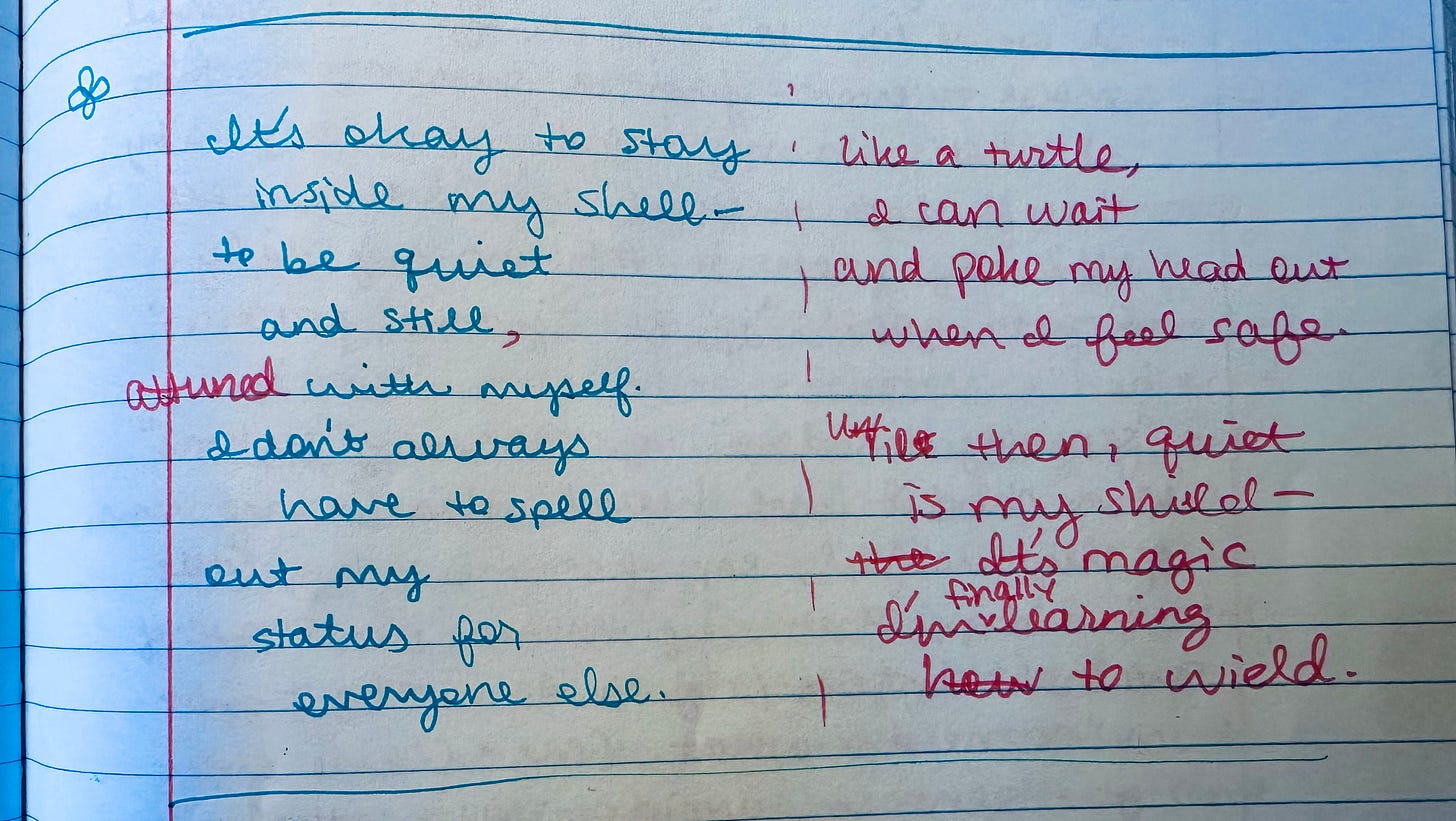 It's okay to stay
inside my shell—
to be quiet
and still,
attuned with myself.
I don't always
have to spell
out my
status for
everyone else.
like a turtle,
I can wait
and poke my head out
when I feel safe.
Until then, quiet
is my shield—
the It's magic
finally
I'm learning
how to wield.